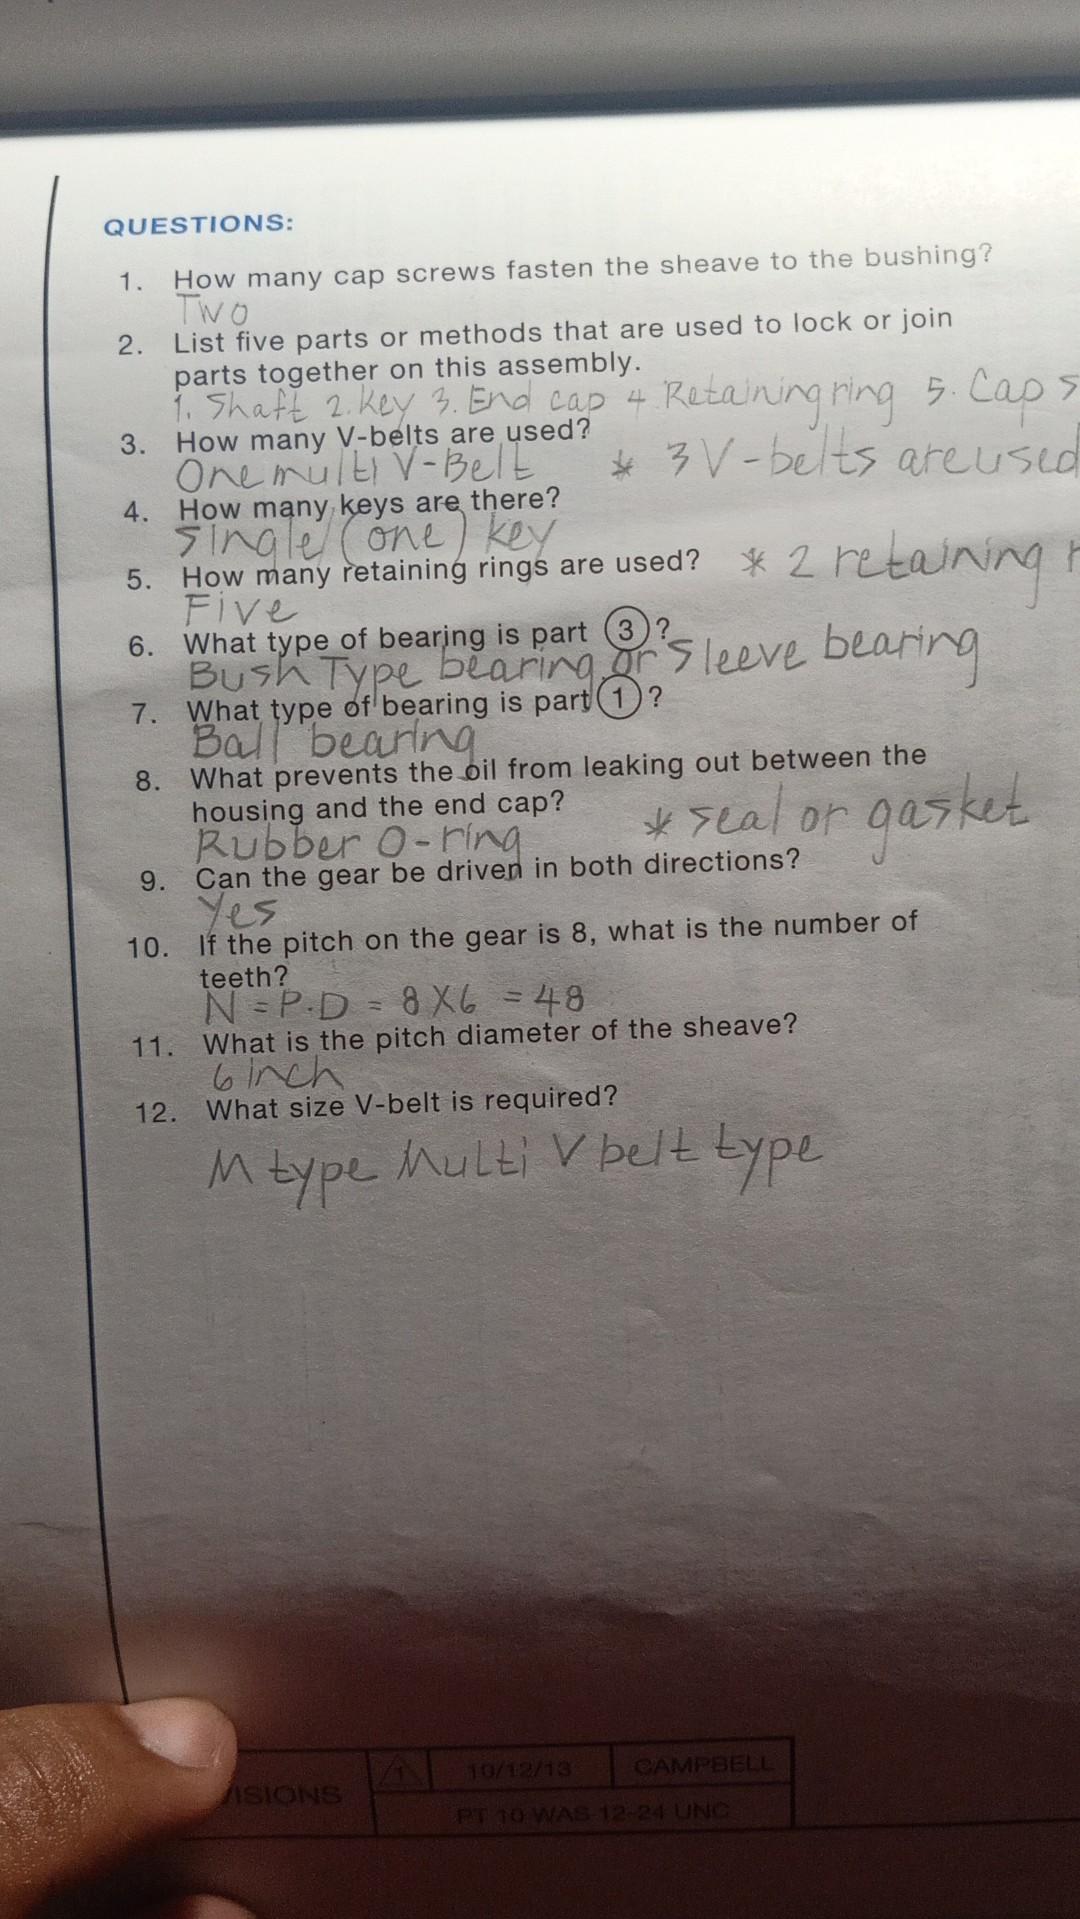 QUESTIONS:
1. How many cap screws fasten the sheave to the bushing?
Two
2. List five parts or methods that are used to lock or join
parts together on this assembly.
1. Shaft 2. Key 3. End cap 4 Retaining ring 5. Cap s
3. How many V-belts are used?
One multi V-Belt * 3 V-belts are used
4. How many keys are there?
Single (one) key
5. How many retaining rings are used? * 2 retaining r
Five
6. What type of bearing is part 3?
Bush Type bearing or Sleeve bearing
7. What type of bearing is part 1?
Ball bearing
8. What prevents the oil from leaking out between the
housing and the end cap?
Rubber O-ring * seal or gasket
9. Can the gear be driven in both directions?
Yes
10. If the pitch on the gear is 8, what is the number of
teeth?
N = P.D = 8 X 6 = 48
11. What is the pitch diameter of the sheave?
6 inch
12. What size V-belt is required?
M type Multi V belt type
VISIONS 1 10/12/13 CAMPBELL
PT 10 WAS 12-24 UNC